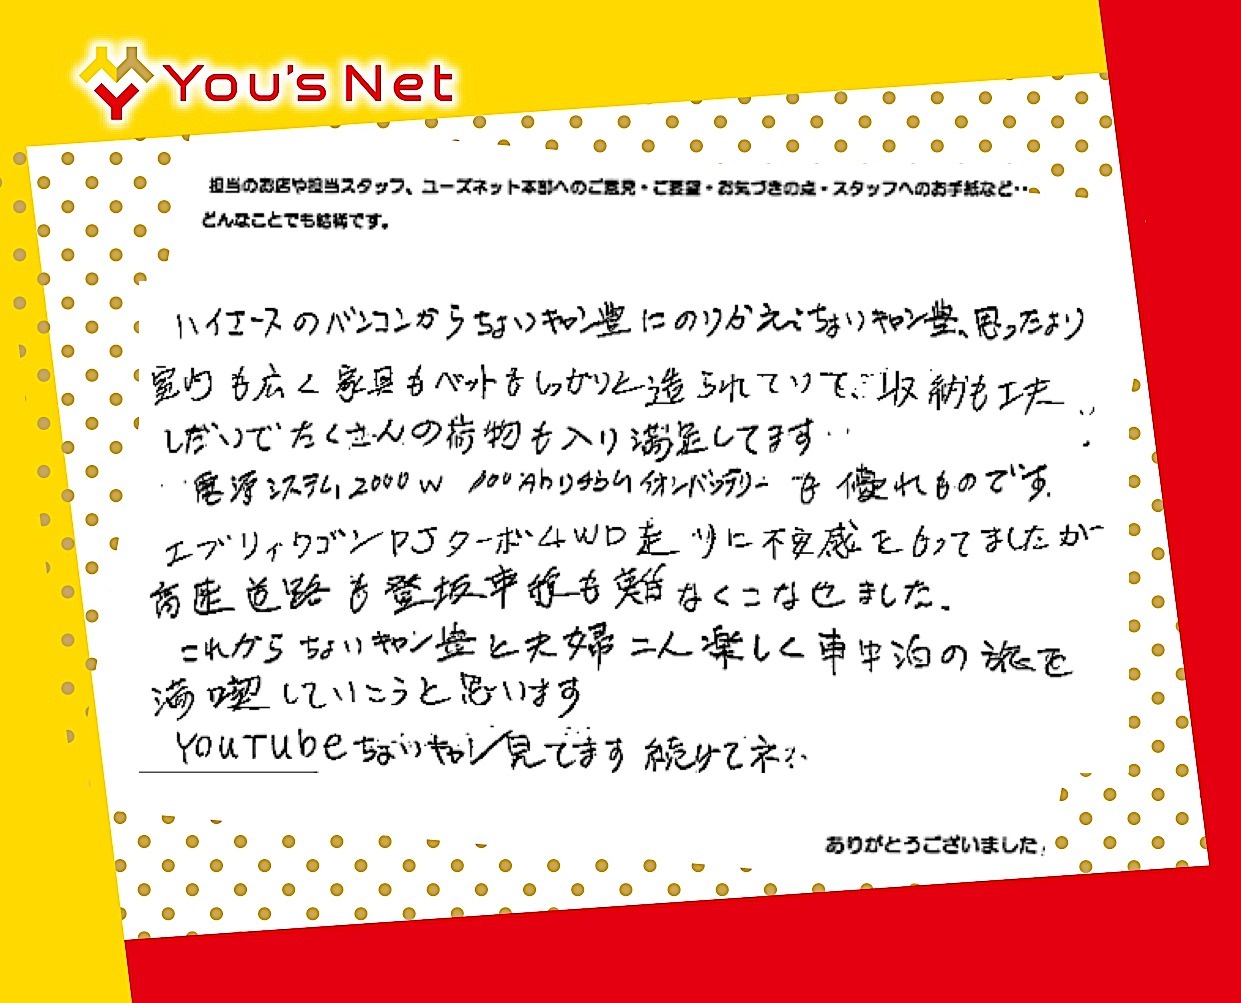 You's Net
担当のお店や担当スタッフ、ユーズネット本部へのご意見・ご要望・お気づきの点・スタッフへのお手紙など・・
どんなことでも結構です。
ハイエースのバンコンからちょいキャン豊にのりかえ、ちょいキャン豊、思ったより
室内も広く家具もベットもしっかりと造られていて、収納も工夫
しだいでたくさんの荷物も入り満足してます‥
電源システム2000W 100Ahリチウムイオンバッテリーも優れものです。
エブリィワゴンPJターボ4WD走りに不安感をもってましたが
高速道路も登坂車線も難なくこなせました。
これからちょいキャン豊と夫婦二人楽しく車中泊の旅を
満喫していこうと思います
YouTubeちょいキャン見てます続けてネ‥
ありがとうございました。